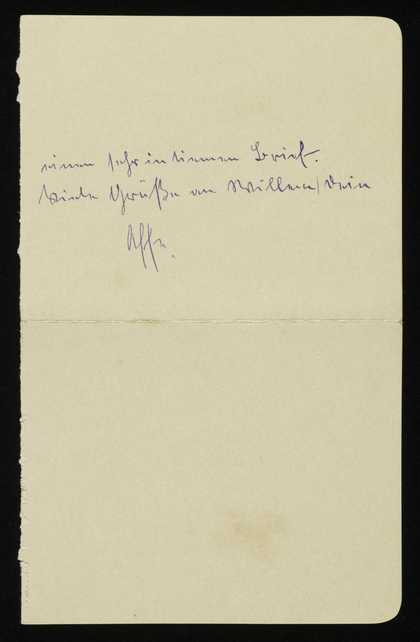 einen sehr intimen Brief.
Viele Grüße an Willem, Dein
Affe.